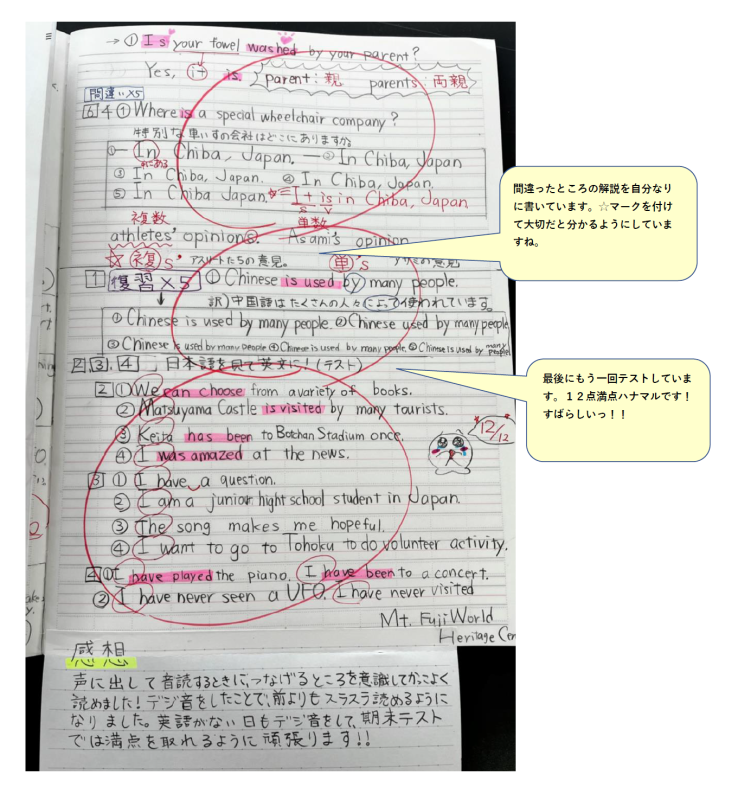 → ① Is your towel washed by your parent?
Yes, it is.
parent：親 parents：両親
間違い×5
6 4 ① Where is a special wheelchair company?
特別な車いすの会社はどこにありますか。
①― In Chiba, Japan. ―② In Chiba, Japan
にある
③ In Chiba, Japan. ④ In Chiba, Japan.
⑤ In Chiba Japan. ☆= It is in Chiba, Japan
S V
複数 単数
athletes' opinions. Asami's opinion
☆ 複 s' アスリートたちの意見。 単 's アサミの意見
1 復習×5 ① Chinese is used by many people.
訳）中国語はたくさんの人々によって使われています。
① Chinese is used by many people. ② Chinese used by many people
③ Chinese is used by many people ④ Chinese is used by many people. ⑤ Chinese is used by many people
2 3. 4 日本語を見て英文に！(テスト)
2 ① We can choose from avariety of books.
② Matsuyama Castle is visited by many tourists.
③ Keita has been to Botchan Stadium once.
④ I was amazed at the news.
12/12
3 ① I have a question.
② I am a junior hight school student in Japan
③ The song makes me hopeful.
④ I want to go to Tohoku to do volunteer activity.
4 ① I have played the piano. I have been to a concert.
② I have never seen a UFO. I have never visited
Mt. Fuji World
Heritage Cen
感想
声に出して音読するときに、つなげるところを意識してかっこよく
読めました！デジ音をしたことで、前よりもスラスラ読めるように
なりました。英語がない日もデジ音をして、期末テスト
では満点を取れるように頑張ります!!
間違ったところの解説を自分なり
に書いています。☆マークを付け
て大切だと分かるようにしていま
すね。
最後にもう一回テストしていま
す。１２点満点ハナマルです！
すばらしいっ！！